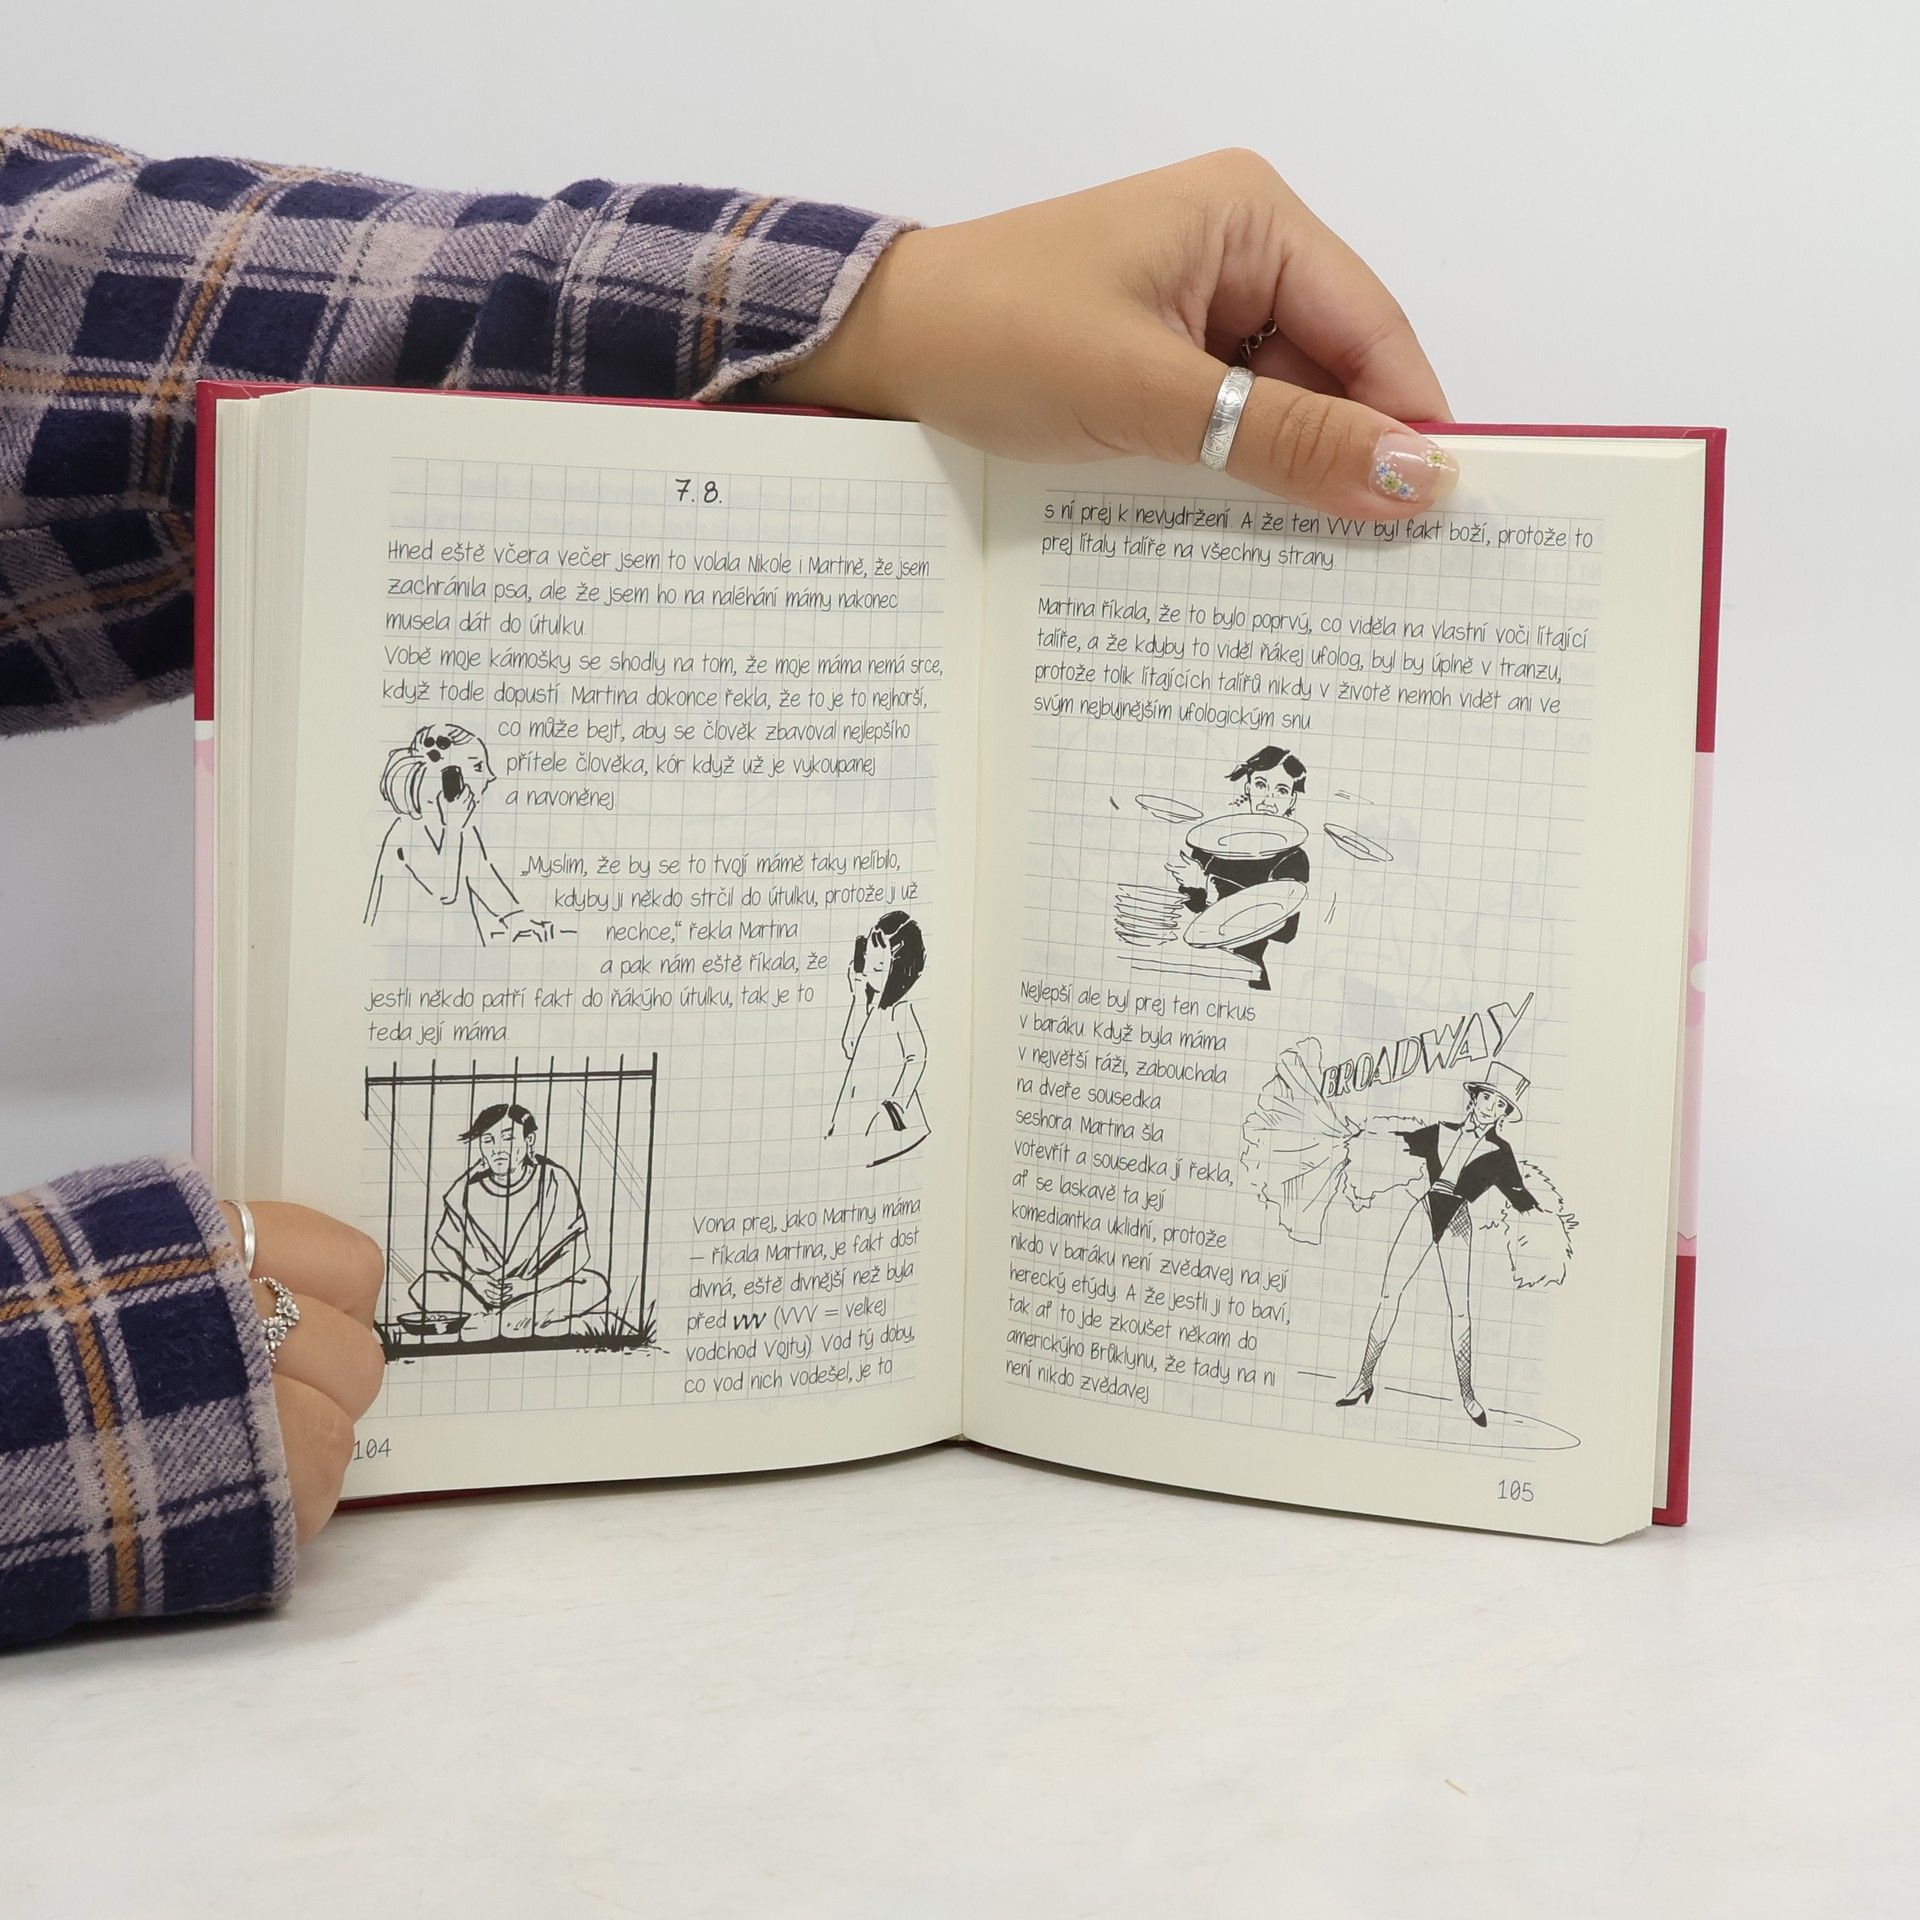 7. 8.
Hned eště včera večer jsem to volala Nikole i Martině, že jsem
zachránila psa, ale že jsem ho na naléhání mámy nakonec
musela dát do útulku.
Vobě moje kámošky se shodly na tom, že moje máma nemá srce,
když todle dopustí. Martina dokonce řekla, že to je to nejhorší,
co může bejt, aby se člověk zbavoval nejlepšího
přítele člověka, kór když už je vykoupanej
a navoněnej.
„Myslim, že by se to tvojí mámě taky nelíbilo,
kdyby ji někdo strčil do útulku, protože ji už
nechce,“ řekla Martina
a pak nám eště říkala, že
jestli někdo patří fakt do ňákýho útulku, tak je to
teda její máma.
Vona prej, jako Martiny máma
– říkala Martina, je fakt dost
divná, eště divnější než byla
před vvv (VVV = velkej
vodchod Vojty). Vod tý doby,
co vod nich vodešel, je to
104
s ní prej k nevydržení. A že ten VVV byl fakt boží, protože to
prej lítaly talíře na všechny strany.
Martina říkala, že to bylo poprvý, co viděla na vlastní voči lítající
talíře, a že kdyby to viděl ňákej ufolog, byl by úplně v tranzu,
protože tolik lítajících talířů nikdy v životě nemoh vidět ani ve
svým nejbujnějším ufologickým snu.
Nejlepší ale byl prej ten cirkus
v baráku. Když byla máma
v největší ráži, zabouchala
na dveře sousedka
seshora. Martina šla
votevřít a sousedka jí řekla,
ať se laskavě ta její
komediantka uklidní, protože
nikdo v baráku není zvědavej na její
herecký etýdy. A že jestli ji to baví,
tak ať to jde zkoušet někam do
americkýho Brůklynu, že tady na ni
není nikdo zvědavej.
BROADWAY
105